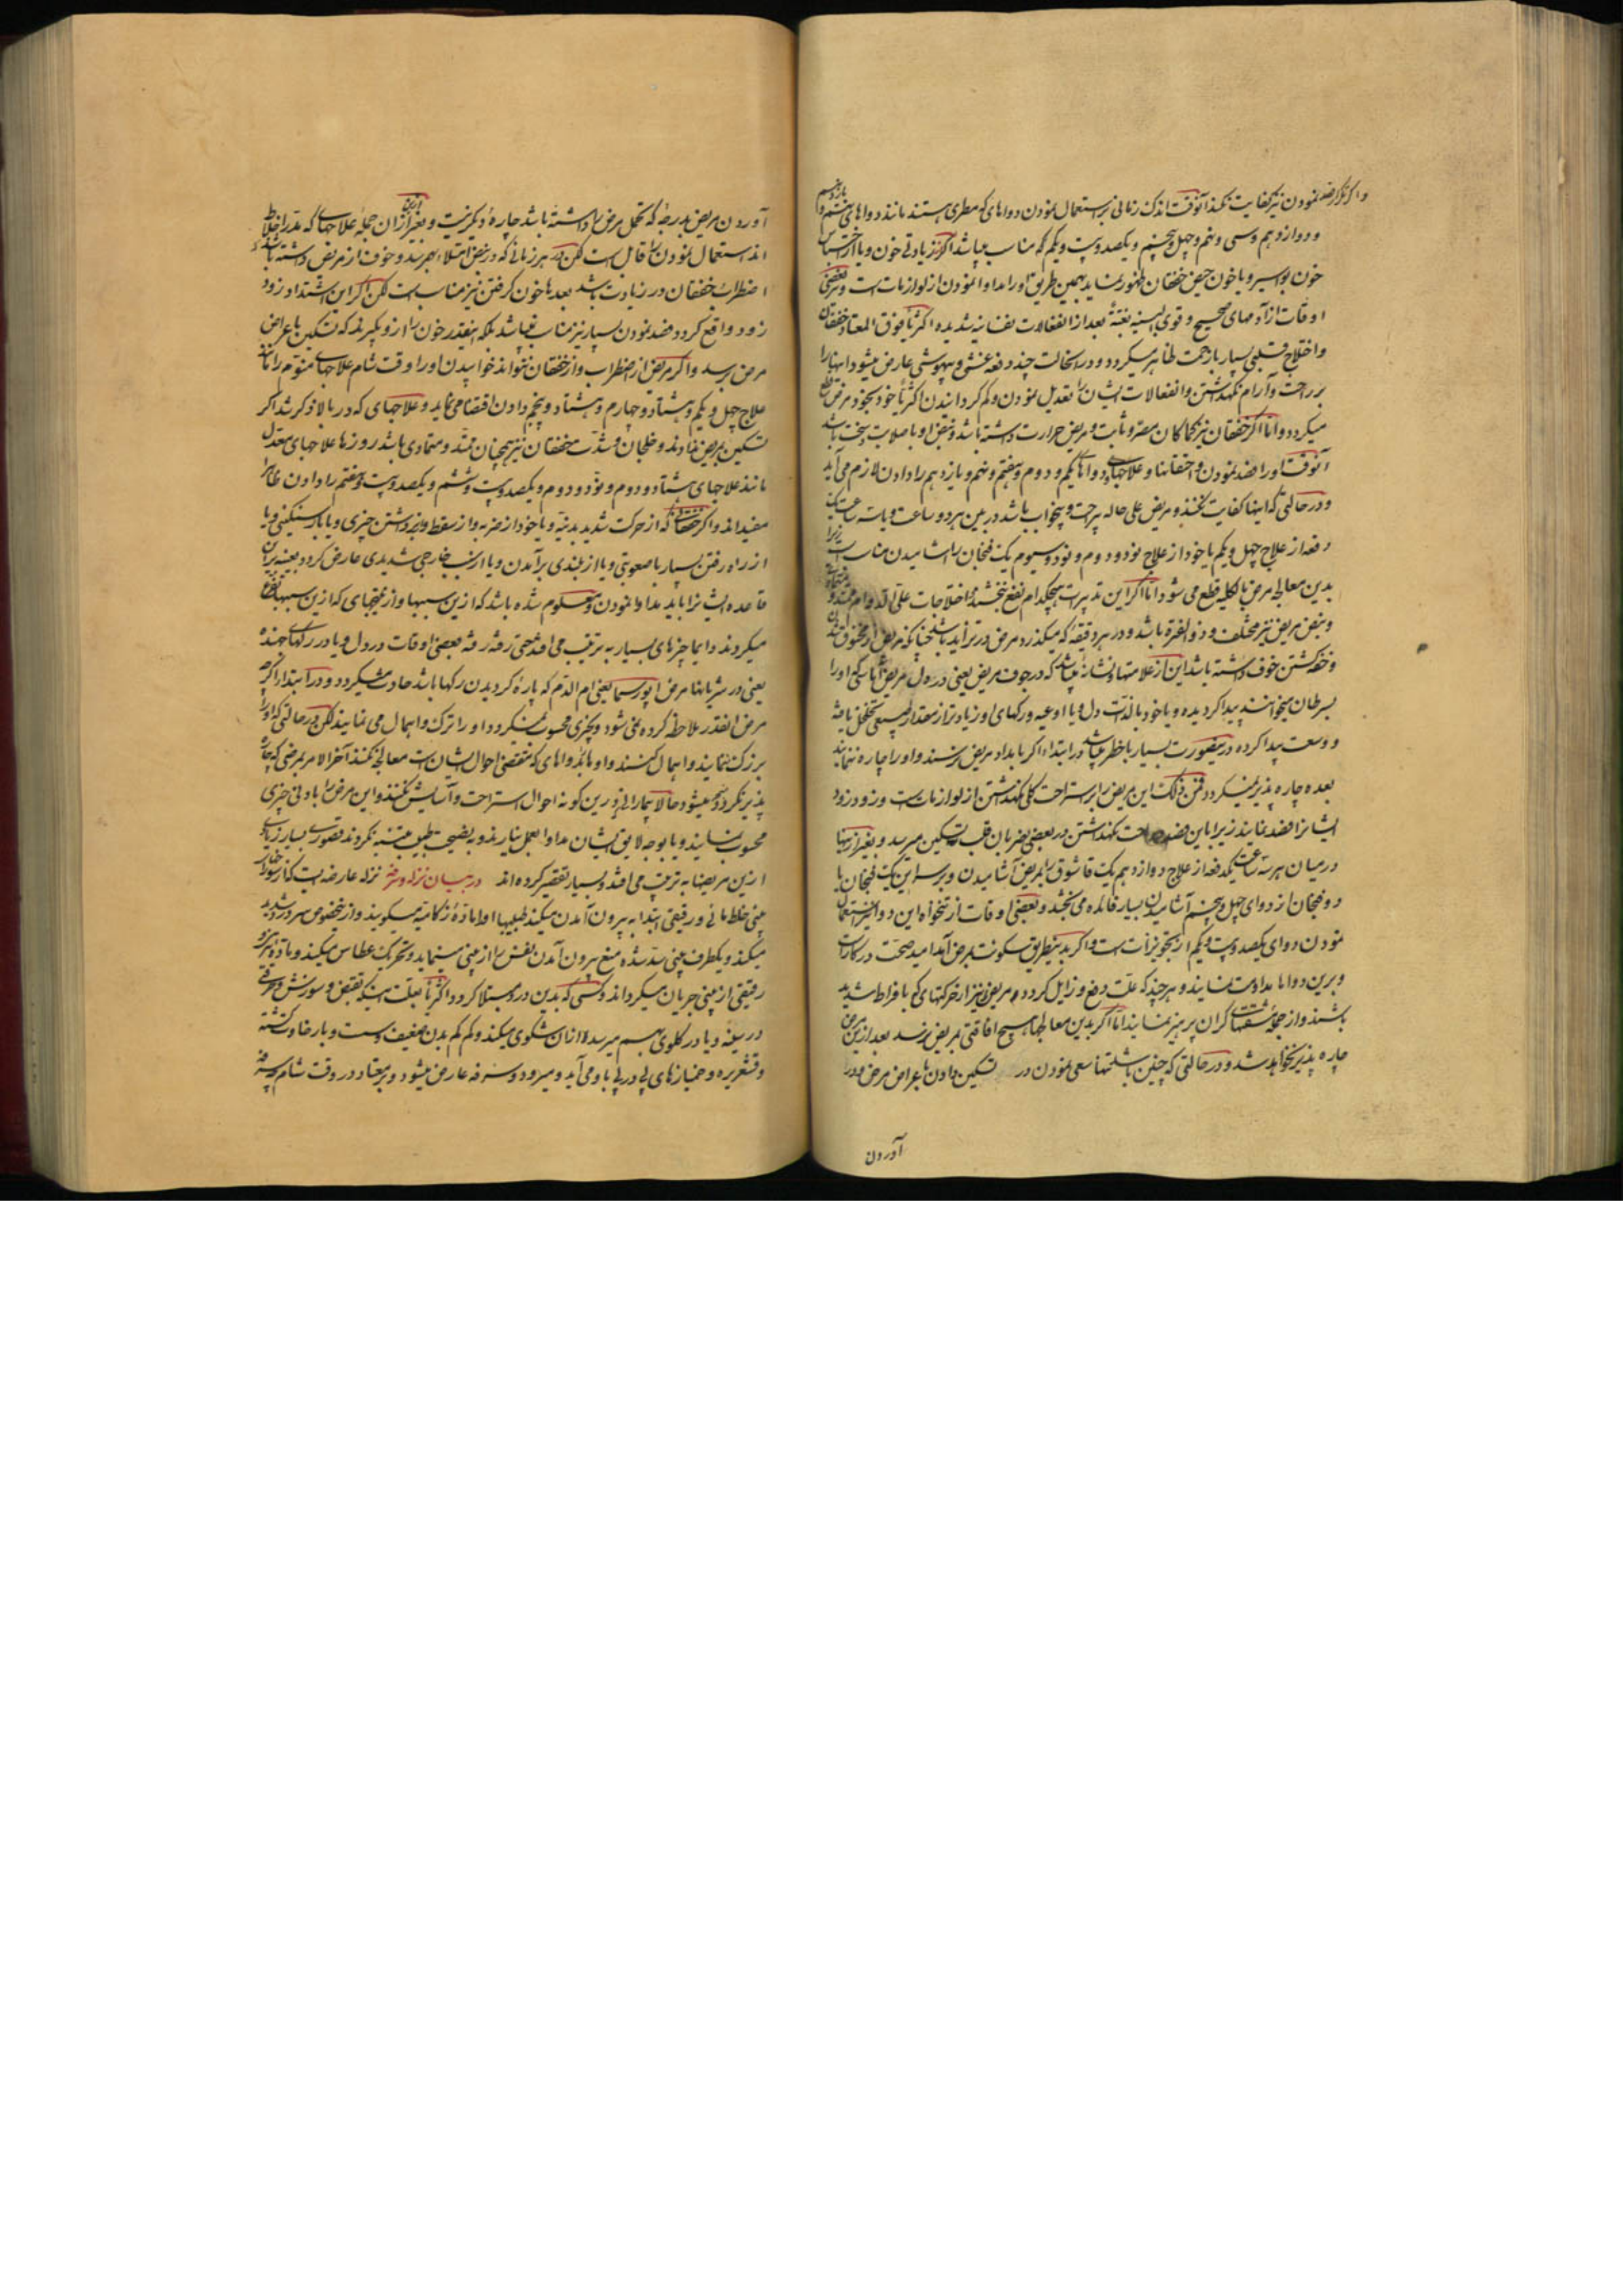 نمودن نیز کفایت نکند آنوقت اندک زمانی بر استعمال نمودن دواهای که مطری هستند مانند دواهای هشتم و یازدهم
و دوازدهم و سی و نهم و چهل و پنجم و یکصد و بیست و یکم که مناسب میباشد اگر از زیادتی خون و یا از احتباس
خون بواسیر و یا خون حیض خفقان ظهور نماید بهمین طریق او را مداوا نمودن از لوازمات است و در بعضی
اوقات از آدمهای صحیح و قوی البنیه بغتةً بعد از انفعالات نفسانیه شدیده اکثریا فوق المعتاد خفقان
و اختلاج قلبی بسیار با زحمت ظاهر میگردد و در اینحالت چند دفعه غشی و بیهوشی عارض میشود اینها را
براحت و آرام نگهداشتن و انفعالات ایشان را تعدیل نمودن و کم گردانیدن اکثریا خود بخود مرض قطع
میگردد و اما اگر خفقان نیز کماکان مصر و ثابت و مریض حرارت داشته باشد و نبض او با صلابت و سخت باشد
آنوقت او را فصد نمودن و احتقانها و علاجهای دواهای یکم و دوم و هفتم و نهم و یازدهم را دادن لازم می آید
و در حالتی که اینها کفایت نکنند و مریض علی حاله بیراحت و بیخواب باشد در بین هر دو ساعت و یا سه ساعت یک
دفعه از علاج چهل و یکم یا خود از علاج نود و دوم و نود و سیوم یک فنجان را آشامیدن مناسب است زیرا
بدین معالجه مرض بالکلیه قطع می شود اما اگر این تدبیرات هیچکدام نفع نبخشد و اختلاجات علی الدوام ممتد و
و نبض مریض نیز مختلف و ذو الفتره باشد و در هر دقیقه که میگذرد مرض در تزاید باشد چنانکه مریض از مخنوق شدن
و خفه گشتن خوف داشته باشد این از علامتها و نشانه میباشد که در جوف مریض یعنی در دل مریض
بسرطان میخوانند پیدا گردیده و یا خود بالذات دل و یا اوعیه و رگهای او زیادتر از مقدار طبیعی تخلخل یافته
و وسعت پیدا کرده درینصورت بسیار با خطر میباشد در ابتدا اگر بامداد مریض نرسند و او را چاره ننمایند
بعده چاره پذیر نمیگردد فمن ذلک این مریض را بر استراحت کلی نگهداشتن از لوازمات است و زود زود
ایشانرا فصد نمایند زیرا باین فصد و راحت نگهداشتن در بعضی ضربان قلب تسکین میرسد و بغیر ازینها
در میان هر سه ساعت یکدفعه از علاج دوازدهم یک قاشوق را بمریض آشامیدن و بر سر این یک فنجان یا
دو فنجان از دوای چهل و پنجم آشامیدن بسیار فائده می بخشد و بعضی اوقات از نیز استعمال
نمودن دوای یکصد و بیست و یکم از تجویزات است و اگر بدینطریق سکونت بمرض آید امید صحت در کار است
و برین دواها مداومت نمایند و هر چند که علت دفع و زایل گردد و مریض نیز از حرکتهای که با فراط شدید
باشند و از جمله مشقتهای گران پرهیز نمایند اما اگر بدین معالجها هیچ افاقتی بمریض نرسد بعد ازین مرض
چاره پذیر نخواهد شد و در حالتی که چنین باشد تنها سعی نمودن در تسکین دادن باعراض مرض و در
آوردن
آوردن مریض بدرجه که تحمل مرض را داشته باشد چاره دیگر نیست و بغیر ازان جمله علاجهای که
اند استعمال نمودن را قابل است لکن در هر زمانی که در نبض امتلاء بهم رسد و خوف از مرض داشته باشد
اضطراب خفقان در زیادت باشد بعدها خون گرفتن نیز مناسب است لکن اگر این اشتداد زود
زود واقع گردد فصد نمودن بسیار نیز مناسب نمیباشد بلکه اینقدر خون را ازو بگیرند که تسکین باعراض
مرض برسد و اگر مریض از اضطراب و از خفقان نتواند خوابیدن او را وقت شام علاجهای منوم را مانند
علاج چهل و یکم و هشتاد و چهارم و هشتاد و پنجم دادن اقتضا می نماید و علاجهای که در بالا ذکر شد اگر
تسکین بمرض ندادند و خلجان و شدت خفقان نیز همچنان ممتد و متمادی باشد روزها علاجهای معتدل
مانند علاجهای هشتاد و دوم و نود و دوم و یکصد و بیست و ششم و یکصد و بیست و هفتم را دادن
مفید اند و اگر خفقان که از حرکت شدید بدنیه و یا خود از ضربه و از سقط و از برداشتن چیزی و یا بار سنگینی و یا
از راه رفتن بسیار با صعوبتی و یا از بلندی برآمدن و یا از سبب خارجی شدیدی عارض گردد بعینه بر آن
قاعده ایشانرا باید مداوا نمودن و معلوم شده باشد که ازین سببها و از نتیجهای که ازین سببها واقع
میگردند دایما چیزهای بسیار به ترتیب می افتد حتی رفته رفته بعضی اوقات در دل و یا در رگهای جهنده
یعنی در شریانها مرض انوریسما یعنی ام الدم که پاره گردیدن رگها باشد حادث میگردد و در ابتدا اگر چه
مرض انقدر ملاحظه کرده نمی شود و بچیزی محسوب نمیگردد و او را ترک و اهمال می نمایند لکن در حالتی که او را
بزرگ ننمایند و اهمال کنند و او را با دواهای که مقتضی احوال ایشان است معالجه نکنند آخر الامر بمرضی که چاره
پذیر نگردد منجر میشود حالا بیماران را درین گونه احوال استراحت و آسایش نکنند و این مرض را بادنی چیزی
محسوب نمایند و یا بوجه لایق ایشان مداوا بعمل نیارند و به نصیحت طبیب متنبه نگردند تصوری بسیار زیادی
ازین مریضها به ترتیب می افتد و بسیار تقصیر کرده اند در بیان نزله و سرفه نزله عارضه ایست که از سوراخهای
بینی خلط مائی و رقیقی ابتدا به بیرون آمدن میکند طبیبها او را ماده زکامیه میگویند و ازینخصوص سر درد شدید
میکند و یکطرف بینی سد شده منع بیرون آمدن نفس را از بینی مینماید و تحریک عطاس میکند و ماده
رقیقی از بینی جریان میگرداند و کسی که بدین درد مبتلا گردد اکثریا بعلت تقبض و سوزش و حرقتی
در سینه و یا در گلوی بهم میرسد و ازان شکوی میکند و کم کم بدن ضعیف و سست و با رخاوت گشته
و قشعریره و خمیازهای پی در پی باو می آید و میرود و سرفه عارض میشود و بر معتاد در وقت شام